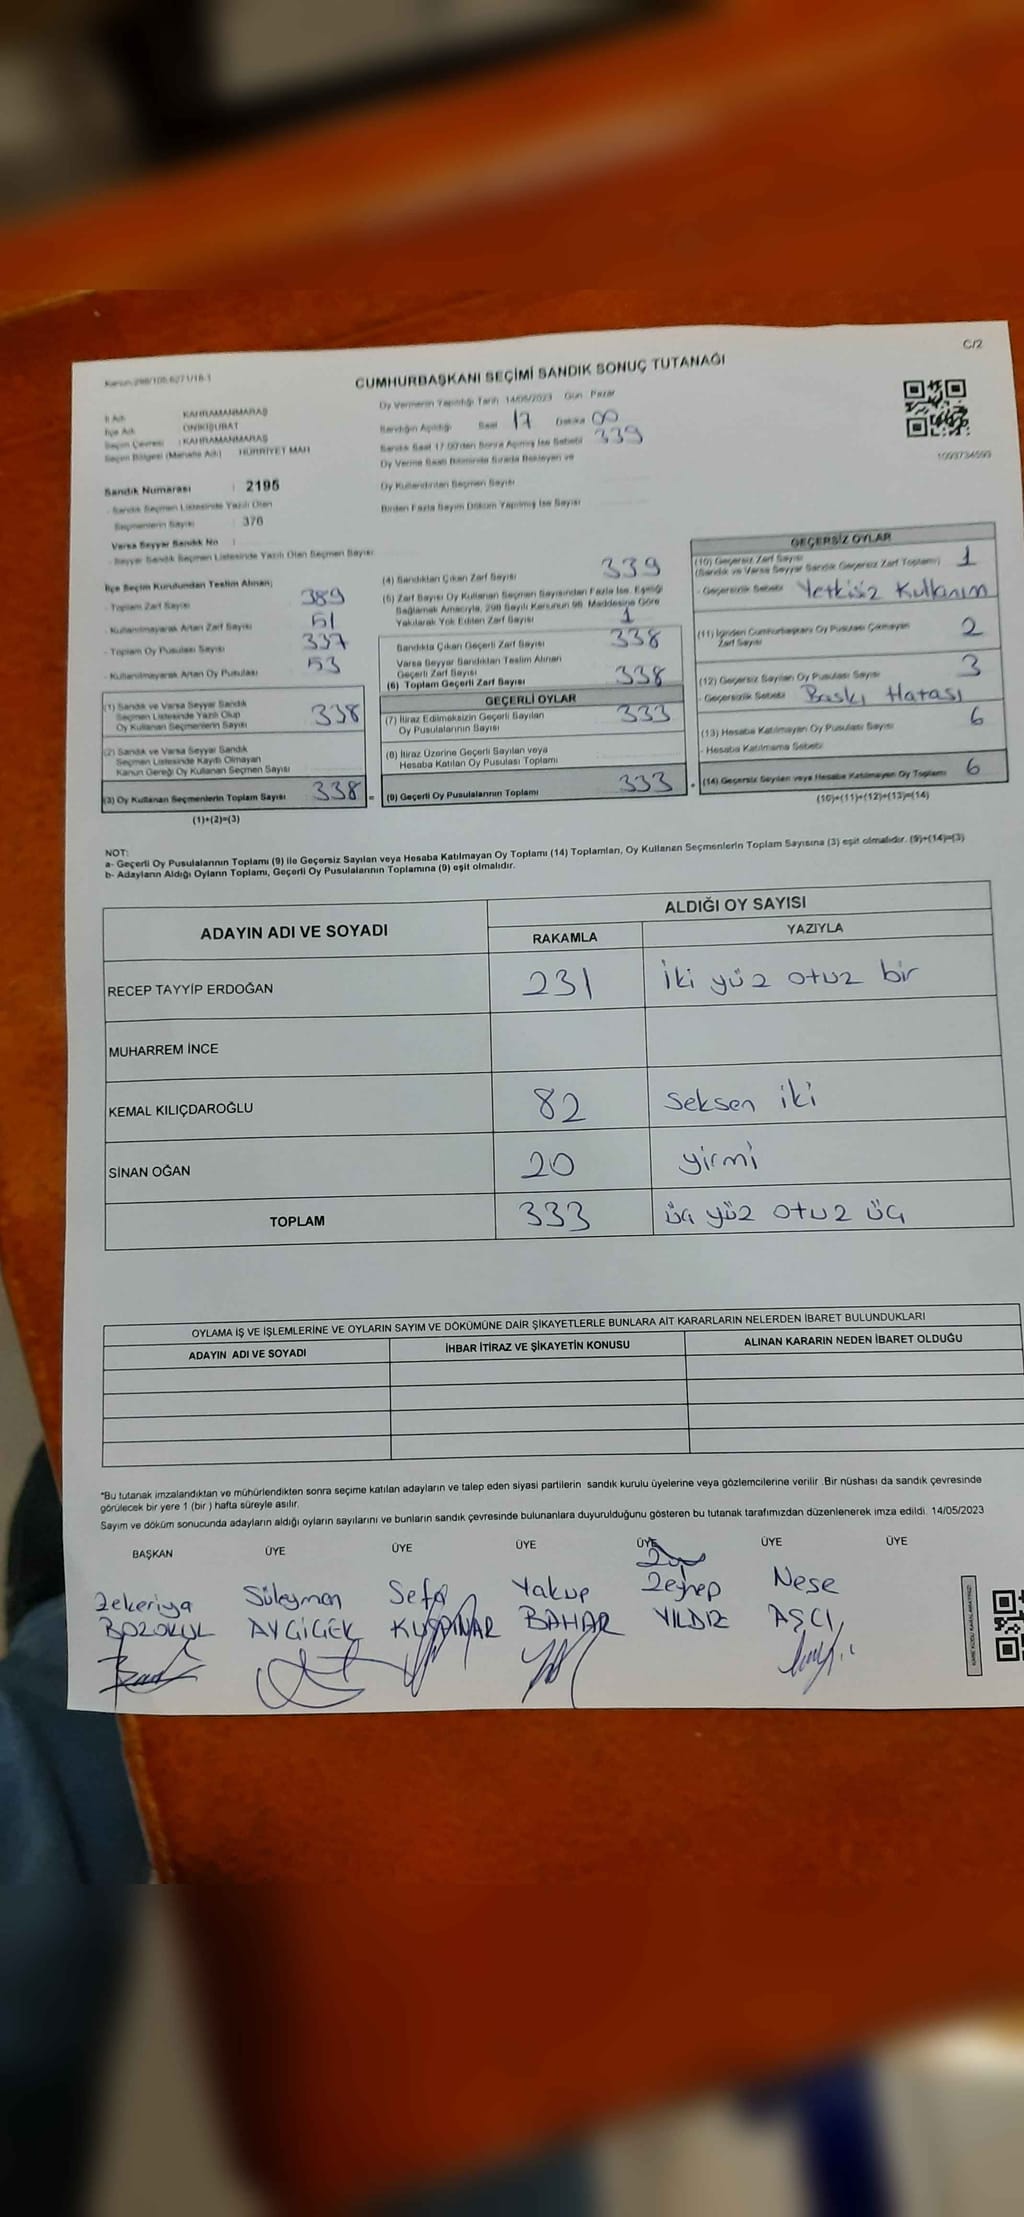 C/2
Kanun:298/105-6271/16-1
CUMHURBAŞKANI SEÇİMİ SANDIK SONUÇ TUTANAĞI
İl Adı : KAHRAMANMARAŞ
İlçe Adı : ONİKİŞUBAT
Seçim Çevresi : KAHRAMANMARAŞ
Seçim Bölgesi (Mahalle Adı) HÜRRİYET MAH
Oy Vermenin Yapıldığı Tarih 14/05/2023 Gün : Pazar
Sandığın Açıldığı Saat 17 Dakika 00
Sandık Saat 17:00'den Sonra Açılmış İse Sebebi 339
Oy Verme Saati Bitiminde Sırada Bekleyen ve
Oy Kullandırılan Seçmen Sayısı
Birden Fazla Sayım Döküm Yapılmış İse Sayısı
1093734593
Sandık Numarası : 2195
- Sandık Seçmen Listesinde Yazılı Olan
Seçmenlerin Sayısı : 376
Varsa Seyyar Sandık No :
- Seyyar Sandık Seçmen Listesinde Yazılı Olan Seçmen Sayısı:
İlçe Seçim Kurulundan Teslim Alınan;
- Toplam Zarf Sayısı 389
- Kullanılmayarak Artan Zarf Sayısı 51
- Toplam Oy Pusulası Sayısı 337
- Kullanılmayarak Artan Oy Pusulası 53
(1) Sandık ve Varsa Seyyar Sandık
Seçmen Listesinde Yazılı Olup
Oy Kullanan Seçmenlerin Sayısı 338
(2) Sandık ve Varsa Seyyar Sandık
Seçmen Listesinde Kayıtlı Olmayan
Kanun Gereği Oy Kullanan Seçmen Sayısı
(3) Oy Kullanan Seçmenlerin Toplam Sayısı 338 =
(1)+(2)=(3)
(4) Sandıktan Çıkan Zarf Sayısı 339
(5) Zarf Sayısı Oy Kullanan Seçmen Sayısından Fazla İse, Eşitliği
Sağlamak Amacıyla, 298 Sayılı Kanunun 98. Maddesine Göre
Yakılarak Yok Edilen Zarf Sayısı 1
Sandıkta Çıkan Geçerli Zarf Sayısı 338
Varsa Seyyar Sandıktan Teslim Alınan
Geçerli Zarf Sayısı
(6) Toplam Geçerli Zarf Sayısı 338
GEÇERLİ OYLAR
(7) İtiraz Edilmeksizin Geçerli Sayılan
Oy Pusulalarının Sayısı 333
(8) İtiraz Üzerine Geçerli Sayılan veya
Hesaba Katılan Oy Pusulası Toplamı
(9) Geçerli Oy Pusulalarının Toplamı 333 +
GEÇERSİZ OYLAR
(10) Geçersiz Zarf Sayısı
(Sandık ve Varsa Seyyar Sandık Geçersiz Zarf Toplamı) 1
- Geçersizlik Sebebi Yetkisiz Kullanım
(11) İçinden Cumhurbaşkanı Oy Pusulası Çıkmayan
Zarf Sayısı 2
(12) Geçersiz Sayılan Oy Pusulası Sayısı 3
- Geçersizlik Sebebi Baskı Hatası
(13) Hesaba Katılmayan Oy Pusulası Sayısı 6
- Hesaba Katılmama Sebebi
(14) Geçersiz Sayılan veya Hesaba Katılmayan Oy Toplamı 6
(10)+(11)+(12)+(13)=(14)
NOT:
a- Geçerli Oy Pusulalarının Toplamı (9) ile Geçersiz Sayılan veya Hesaba Katılmayan Oy Toplamı (14) Toplamları, Oy Kullanan Seçmenlerin Toplam Sayısına (3) eşit olmalıdır. (9)+(14)=(3)
b- Adayların Aldığı Oyların Toplamı, Geçerli Oy Pusulalarının Toplamına (9) eşit olmalıdır.
ADAYIN ADI VE SOYADI ALDIĞI OY SAYISI
RAKAMLA YAZIYLA
RECEP TAYYİP ERDOĞAN 231 İki yüz otuz bir
MUHARREM İNCE
KEMAL KILIÇDAROĞLU 82 Seksen iki
SİNAN OĞAN 20 yirmi
TOPLAM 333 üç yüz otuz üç
OYLAMA İŞ VE İŞLEMLERİNE VE OYLARIN SAYIM VE DÖKÜMÜNE DAİR ŞİKAYETLERLE BUNLARA AİT KARARLARIN NELERDEN İBARET BULUNDUKLARI
ADAYIN ADI VE SOYADI İHBAR İTİRAZ VE ŞİKAYETİN KONUSU ALINAN KARARIN NEDEN İBARET OLDUĞU
*Bu tutanak imzalandıktan ve mühürlendikten sonra seçime katılan adayların ve talep eden siyasi partilerin sandık kurulu üyelerine veya gözlemcilerine verilir .Bir nüshası da sandık çevresinde
görülecek bir yere 1 (bir ) hafta süreyle asılır.
Sayım ve döküm sonucunda adayların aldığı oyların sayılarını ve bunların sandık çevresinde bulunanlara duyurulduğunu gösteren bu tutanak tarafımızdan düzenlenerek imza edildi. 14/05/2023
BAŞKAN ÜYE ÜYE ÜYE ÜYE ÜYE ÜYE
Zekeriya Süleyman Sefa Yakup Zeynep Neşe
BOZOKUL AYÇİÇEK KUŞPINAR BAHAR YILDIZ AŞCI